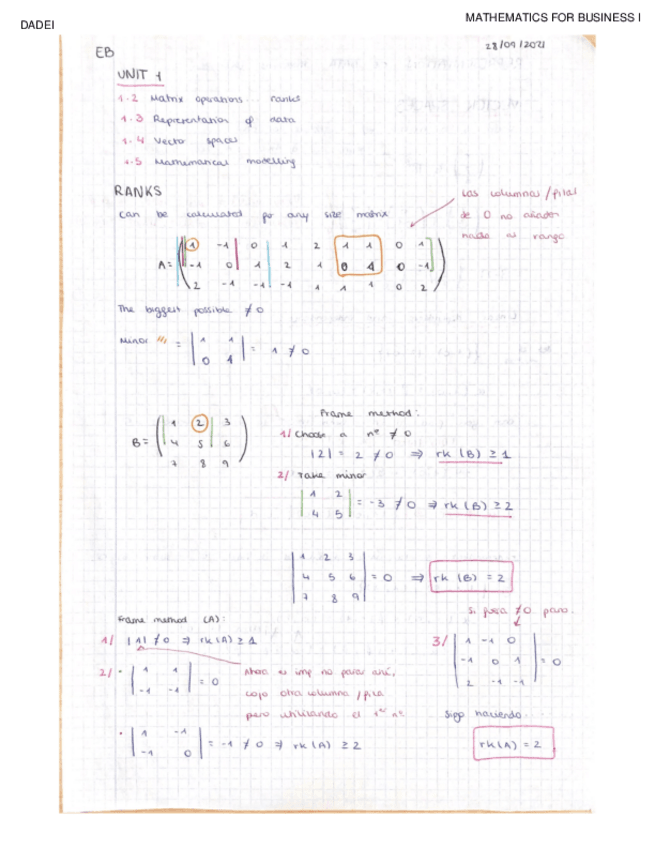 DADEI
MATHEMATICS FOR BUSINESS I
28/09/2021
EB
UNIT 1
1.2 Matrix operations ... ranks
1.3 Representation of data
1.4 Vector spaces
1.5 Mathematical modelling
RANKS
Can be calculated for any size matrix
Las columnas/filas
de 0 no añaden
nada al rango
A = ( 1 -1 0 1 2 1 1 0 1
-1 0 1 2 1 0 1 0 -1
2 -1 -1 -1 1 1 1 0 2 )
The biggest possible ≠ 0
Minor = | 1 1
0 1 | = 1 ≠ 0
B = ( 1 2 3
4 5 6
7 8 9 )
Frame method:
1/ Choose a nº ≠ 0
|2| = 2 ≠ 0 ⇒ rk (B) ≥ 1
2/ Take minor
| 1 2
4 5 | = -3 ≠ 0 ⇒ rk (B) ≥ 2
| 1 2 3
4 5 6
7 8 9 | = 0 ⇒ rk (B) = 2
Frame method (A):
1/ |1| ≠ 0 ⇒ rk(A) ≥ 1
2/ · | 1 1
-1 -1 | = 0
Ahora es imp no parar ahí,
cojo otra columna/fila
pero utilizando el 1er nº
· | 1 -1
-1 0 | = -1 ≠ 0 ⇒ rk (A) ≥ 2
Si fuera ≠ 0 paro.
3/ | 1 -1 0
-1 0 1
2 -1 -1 | = 0
Sigo haciendo...
rk(A) = 2